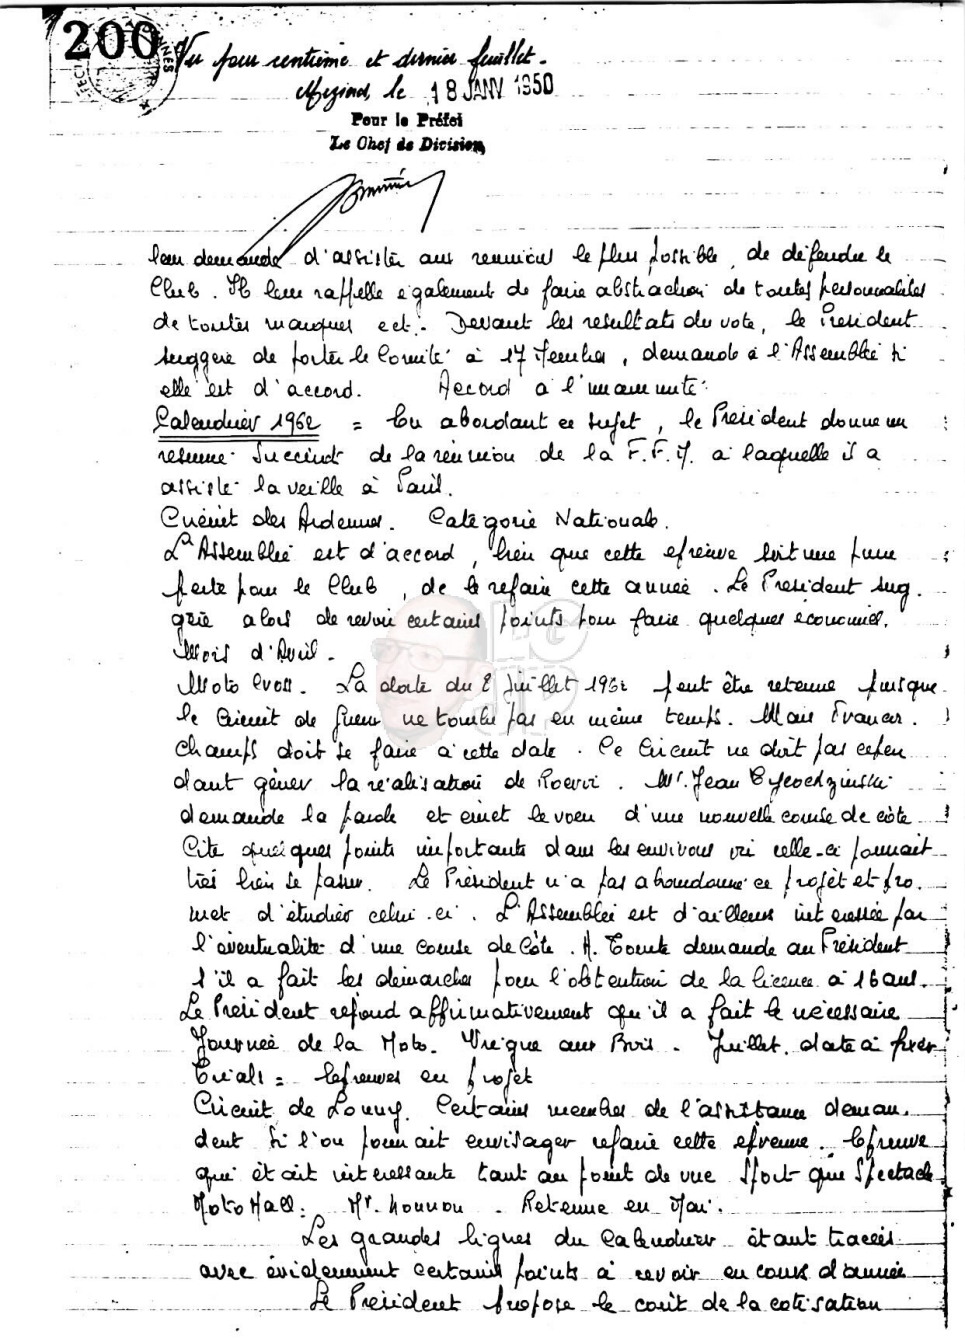 200
Vu pour centième et dernier feuillet.
Mézières, le 18 JANV 1950
Pour le Préfet
Le Chef de Division,
leur demande d'assister aux reunions le plus possible, de défendre le
Club. Il leur rappelle egalement de faire abstraction de toutes personnalités
de toutes marques ect. Devant les resultats du vote, le President
suggere de porter le Comité à 17 membres, demande à l'Assemblée si
elle est d'accord. Accord a l'unanimité.
Calendrier 1962 = En abordant ce sujet, le President donne un
resume succinct de la réunion de la F.F.M. a laquelle il a
assisté la veille à Paris.
Circuit des Ardennes. Categorie Nationale.
L'Assemblée est d'accord, bien que cette epreuve soit une pure
perte pour le Club, de le refaire cette année. Le President sug.
gère alors de revoir certains points pour faire quelques économies.
Mois d'Avril.
Moto Cross. La date du 8 Juillet 1962 peut être retenue puisque
le Circuit de ne tombe pas en même temps. Mais Francor.
champs doit se faire à cette date. Ce Circuit ne doit pas cepen
dant gêner la réalisation de Rocroi. Mr. Jean
demande la parole et emet le voeu d'une nouvelle course de côte
Cite quelques points importants dans les environs où celle-ci pourrait
très bien se passer. Le Président n'a pas abandonné ce projet et pro.
met d'étudier celui-ci. L'Assemblée est d'ailleurs interessée par
l'éventualité d'une course de Côte. A. demande au Président
s'il a fait les démarches pour l'obtention de la licence à 16 ans.
Le President repond affirmativement qu'il a fait le nécessaire
Journée de la Moto. Vrigne aux Bois. Juillet. date à fixer
Trials = Epreuves en projet
Circuit de Lonny. Certains membres de l'assistance deman.
dent si l'on pourrait envisager refaire cette epreuve. Epreuve
qui était interessante tant au point de vue Sport que Spectacle
Moto Ball. Mr. Retenue en Mai.
Les grandes lignes du Calendrier étant tracées
avec évidemment certains points à revoir en cours d'année
Le Président propose le coût de la cotisation